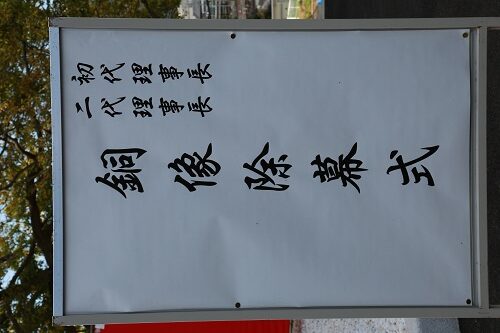 初代理事長
二代理事長
銅像除幕式